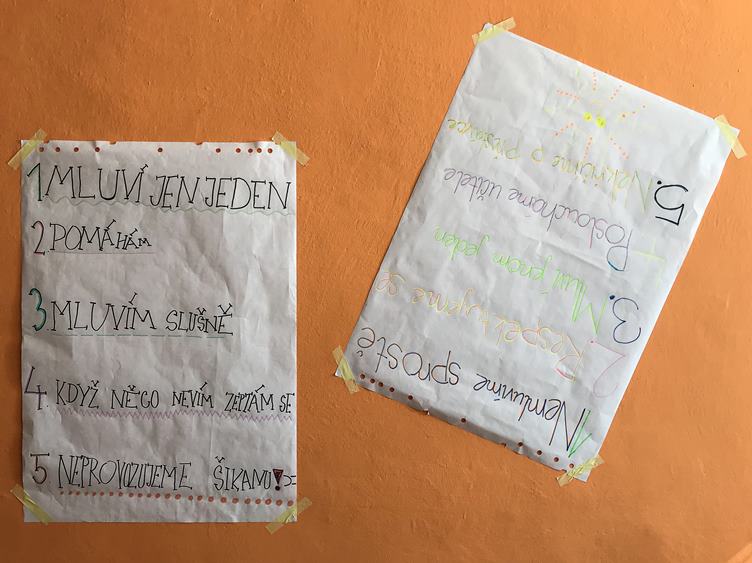 1 MLUVÍ JEN JEDEN
2. POMÁHÁM
3 MLUVÍM SLUŠNĚ
4. KDYŽ NĚCO NEVÍM ZEPTÁM SE
5 NEPROVOZUJEME ŠIKANU!
1 Nemluvíme sprostě
2. Respektujeme se
3. Mluví jenom jeden
4 Posloucháme učitele
5. Nekřičíme o přestávce